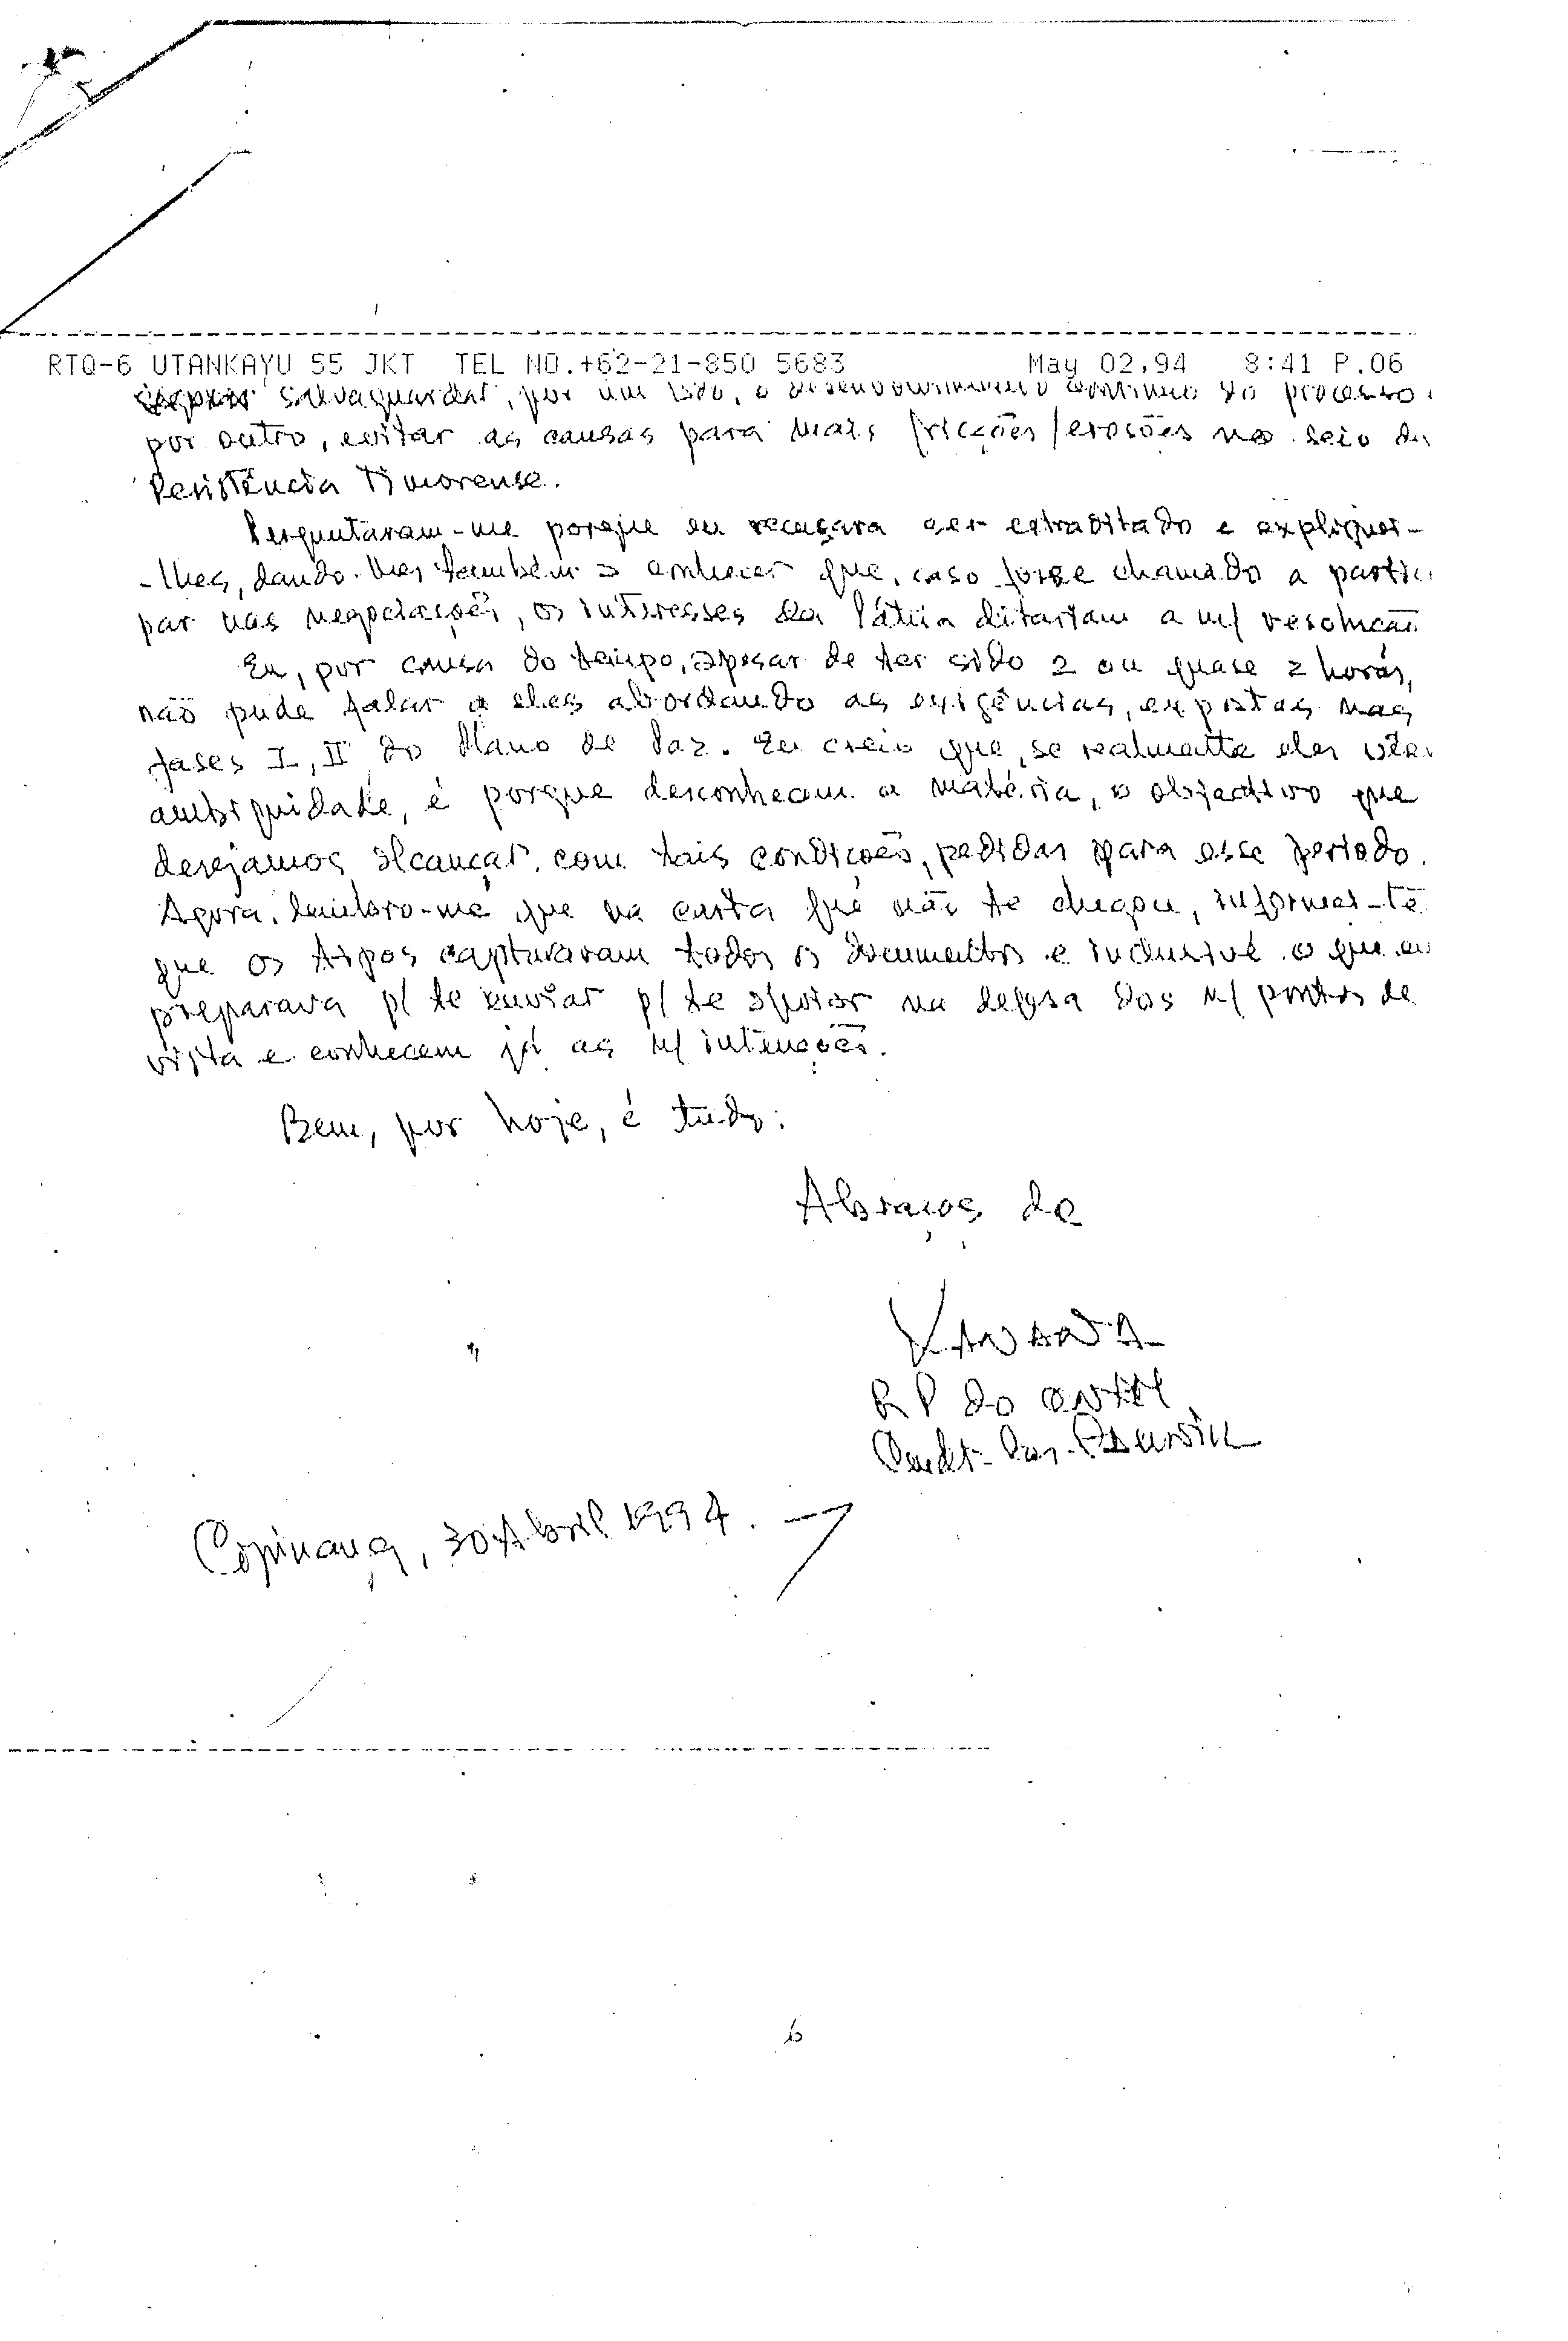 RTQ-6 UTANKAYU 55 JKT TEL NO.+62-21-850 5683 May 02,94 8:41 P.06
salvaguardar, por um lado, o desenvolvimento contínuo do processo
por outro, evitar as causas para mais fricções/erosões no seio da
Resistência Timorense.
Perguntaram-me porque eu recusara ser extraditado e expliquei-
-lhes, dando-lhes também a conhecer que, caso fosse chamado a partici
par nas negociações, os interesses da Pátria ditariam a m/ resolução
Eu, por causa do tempo, apesar de ter sido 2 ou quase 2 horas,
não pude falar a eles abordando as exigências, expostas nas
fases I, II do Plano de Paz. Eu creio que, se realmente eles
ambiguidade, é porque desconhecem a matéria, o objectivo que
desejamos alcançar, com tais condições, pedidas para esse período.
Agora, lembro-me que na carta que não te chegou, informei-te
que os tipos capturaram todos os documentos e inclusivé o que eu
preparava p/ te enviar p/ te apoiar na defesa dos n/ pontos de
vista e conhecem já as n/ intenções.
Bem, por hoje, é tudo.
Abraços de
XANANA
do
Cipinang, 30 Abril 1994.
6